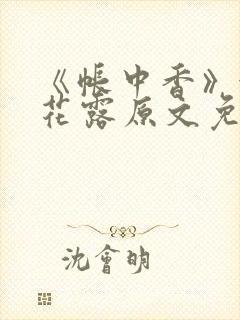 《帐中香》
花露原文免
沈會明